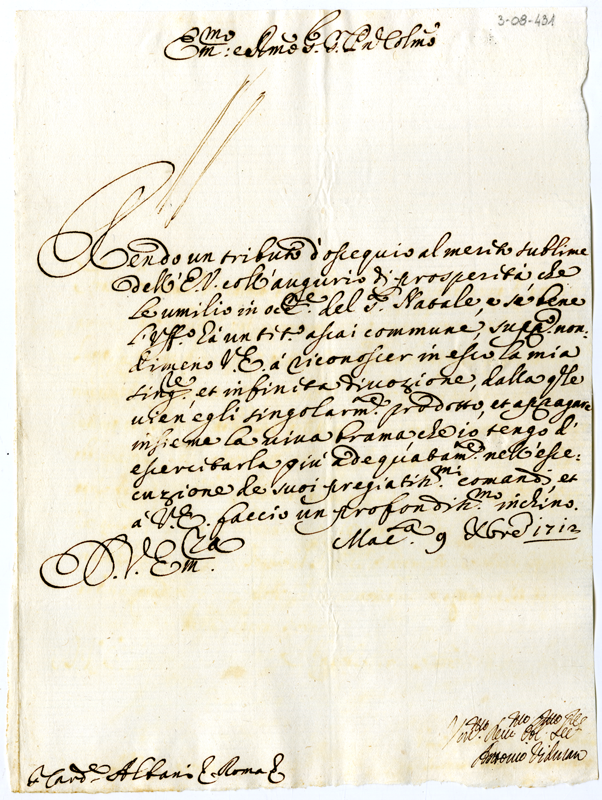 3-08-431
Em.mo e Rmo S. S. Pn Colmo
Rendo un tributo d'ossequio al merito sublime
dell'E.V. coll'augurio di prosperità che
Le umilio in occ.ne del S. Natale, e se bene
l'Uff.o hà un tit.o assai commune, supp.co non-
dimeno V.E. à riconoscer in esso la mia
sing.re et infinita divozione, dalla q.le
vien'egli singolarm.te prodotto, et appagare
insieme la viva brama che io tengo d'
esercitarla più adequatam.te nell'ese-
cuzione de suoi pregiatis.mi comandi, et
à V.E. faccio un profondis.mo inchino.
Mac.a 9 Xbre 1712
D. V. Em.za
Antonio Vidman
Card. Albani Roma